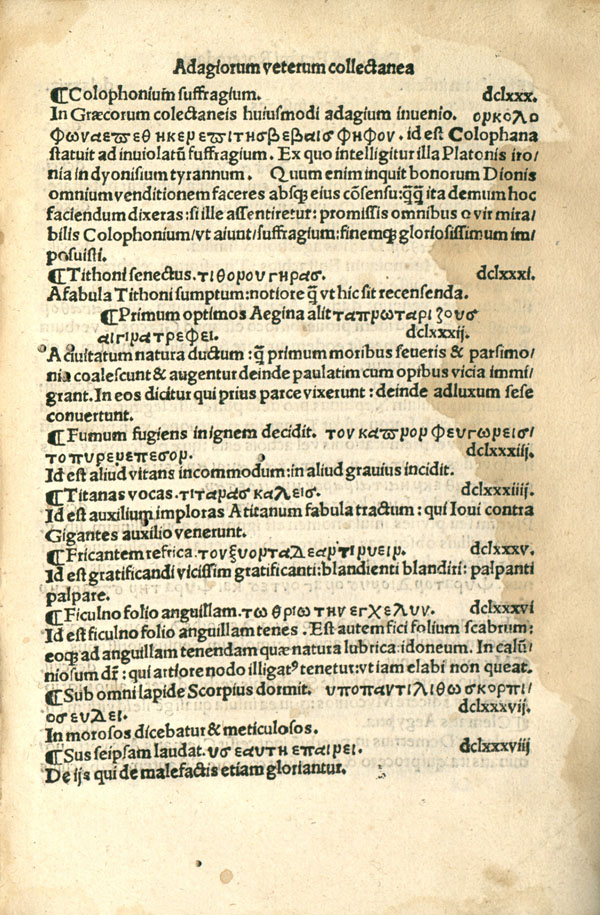 Adagiorum veterum collectanea
¶Colophonium suffragium. dclxxx.
In Græcorum colectaneis huiusmodi adagium inuenio. ορκολο
φωναεϖεθηκερεϖιτησβεβαισφηφον. id est Colophana
statuit ad inuiolatũ suffragium. Ex quo intelligitur illa Platonis iro/
nia in dyonisium tyrannum. Quum enim inquit bonorum Dionis
omnium venditionem faceres absqꝫ eius cõsensu: q̃q̃ ita demum hoc
faciendum dixeras: si ille assentiretur: promissis omnibus o vir mira/
bilis Colophonium/vt aiunt/suffragium: finemqꝫ gloriosissimum im/
posuisti.
¶Tithoni senectus. τιθορουγηρασ. dclxxxi.
A fabula Tithoni sumptum: notiore q̃ vt hic sit recensenda.
¶Primum optimos Aegina alit ταπρωταριζουσ
αιγιρατρεφει. dclxxxij.
A ciuitatum natura ductum: q̃ primum moribus seueris & parsimo/
nia coalescunt & augentur deinde paulatim cum opibus vicia immi/
grant. In eos dicitur qui prius parce vixerunt: deinde ad luxum sese
conuertunt.
¶Fumum fugiens in ignem decidit. τον καϖρορ φευγωρεισ/
τοπυρερεπεσορ. dclxxxiij.
Id est aliud vitans incommodum: in aliud grauius incidit.
¶Titanas vocas. τιταρασ καλεισ. dclxxxiiij.
Id est auxilium imploras A titanum fabula tractum: qui Ioui contra
Gigantes auxilio venerunt.
¶Fricantem refrica. τονξυορταλεαρτιρυειρ. dclxxxv.
Id est gratificandi vicissim gratificanti: blandienti blandiri: palpanti
palpare.
¶Ficulno folio anguillam. τω θριω την εγχελυν. dclxxxvi
Id est ficulno folio anguillam tenes. Est autem fici folium scabrum:
eoqꝫ ad anguillam tenendam quæ natura lubrica: idoneum. In calũ/
niosum dr̃: qui artiore nodo illigatꝰ tenetur: vt iam elabi non queat.
¶Sub omni lapide Scorpius dormit. υποπαντιλιθωσκορπι/
οσευλει. dclxxxvij.
In morosos dicebatur & meticulosos.
¶Sus seipsam laudat. υσεαυτηεπαιρει. dclxxxviij
De ijs qui de malefactis etiam gloriantur.